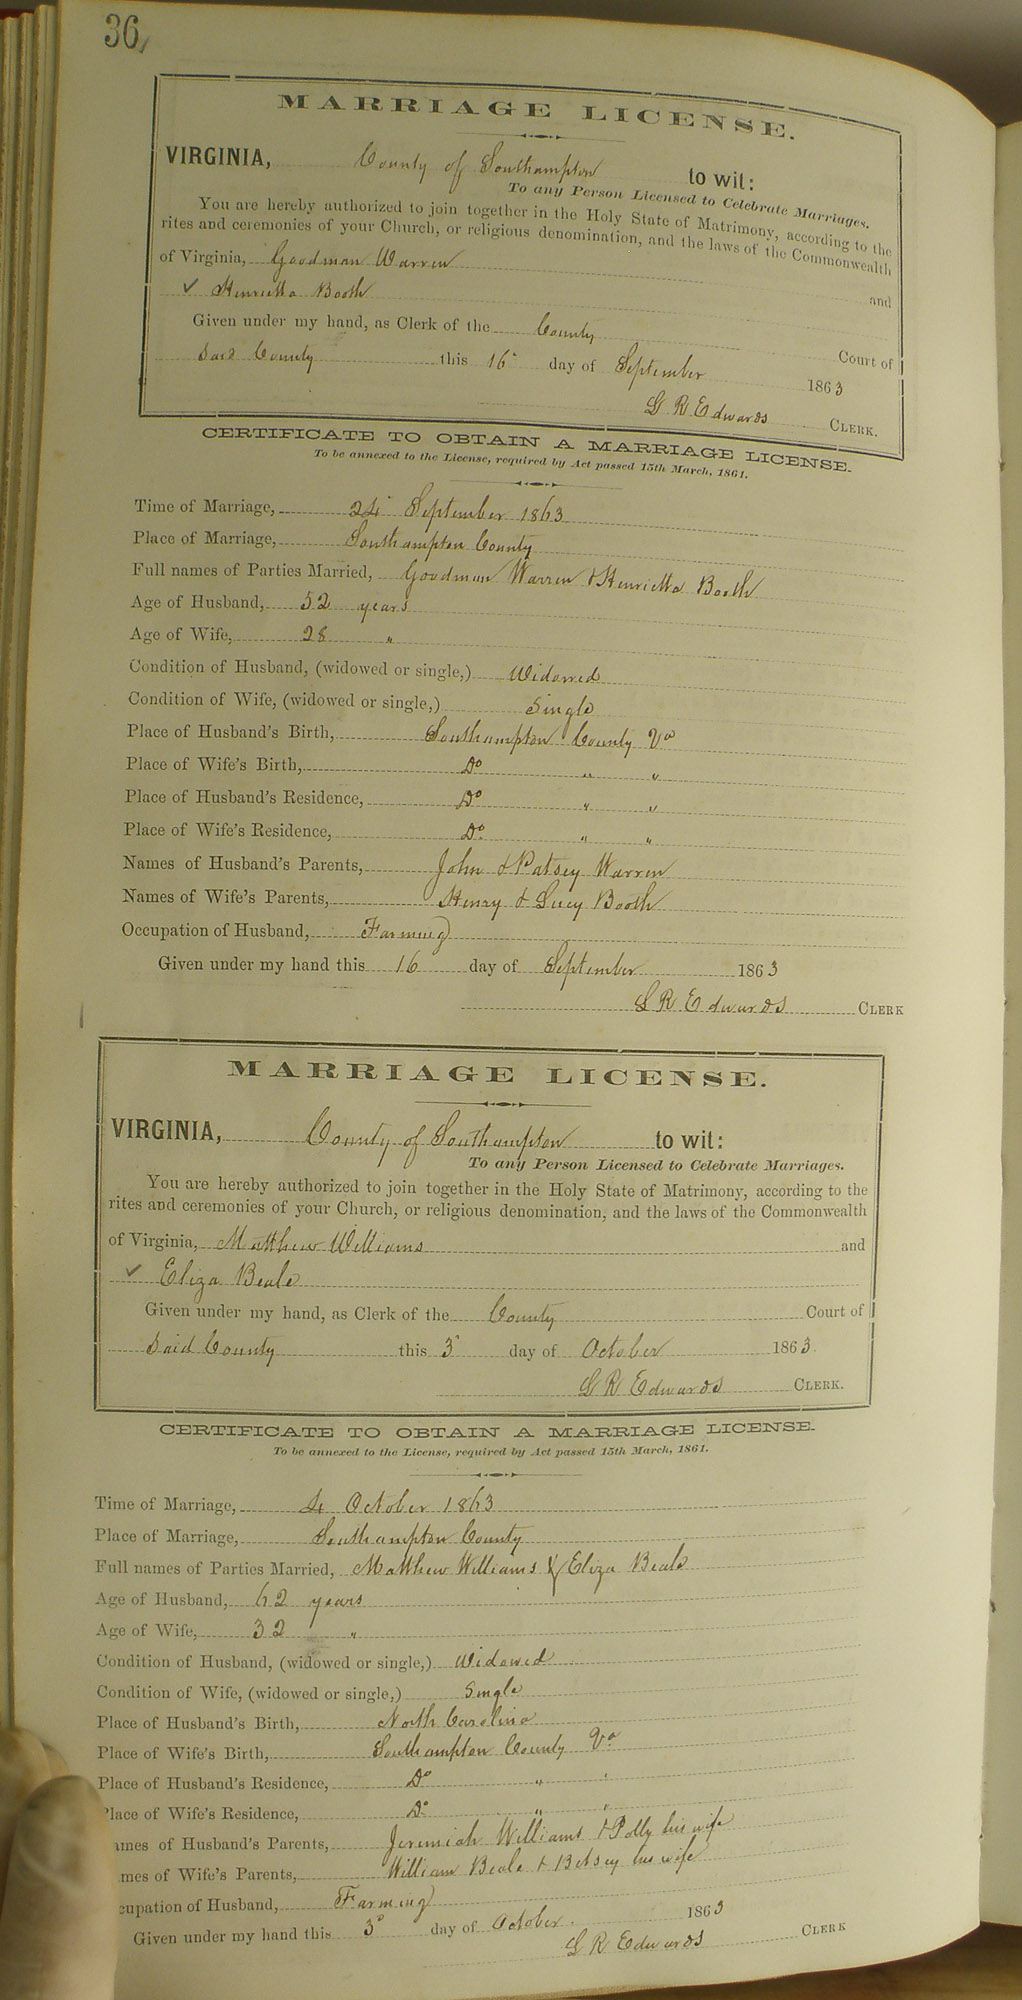 36,
MARRIAGE LICENSE.
VIRGINIA, County of Southampton to wit:
To any Person Licensed to Celebrate Marriages.
You are hereby authorized to join together in the Holy State of Matrimony, according to the
rites and ceremonies of your Church, or religious denomination, and the laws of the Commonwealth
of Virginia, Goodman Warren and
✓ Henrietta Booth
Given under my hand, as Clerk of the County Court of
Said County this 16 day of September 1863
L R Edwards CLERK.
CERTIFICATE TO OBTAIN A MARRIAGE LICENSE.
To be annexed to the License, required by Act passed 15th March, 1861.
Time of Marriage, 24 September 1863
Place of Marriage, Southampton County
Full names of Parties Married, Goodman Warren & Henrietta Booth
Age of Husband, 52 years
Age of Wife, 28 "
Condition of Husband, (widowed or single,) Widowed
Condition of Wife, (widowed or single,) Single
Place of Husband's Birth, Southampton County Va
Place of Wife's Birth, Do " "
Place of Husband's Residence, Do " "
Place of Wife's Residence, Do " "
Names of Husband's Parents, John & Patsey Warren
Names of Wife's Parents, Henry & Lucy Booth
Occupation of Husband, Farming
Given under my hand this 16 day of September 1863
L R Edwards CLERK
MARRIAGE LICENSE.
VIRGINIA, County of Southampton to wit:
To any Person Licensed to Celebrate Marriages.
You are hereby authorized to join together in the Holy State of Matrimony, according to the
rites and ceremonies of your Church, or religious denomination, and the laws of the Commonwealth
of Virginia, Matthew Williams and
✓ Eliza Beale
Given under my hand, as Clerk of the County Court of
Said County this 3 day of October 1863.
L R Edwards CLERK.
CERTIFICATE TO OBTAIN A MARRIAGE LICENSE.
To be annexed to the License, required by Act passed 15th March, 1861.
Time of Marriage, 4 October 1863
Place of Marriage, Southampton County
Full names of Parties Married, Matthew Williams & Eliza Beale
Age of Husband, 62 years
Age of Wife, 32 "
Condition of Husband, (widowed or single,) Widowed
Condition of Wife, (widowed or single,) Single
Place of Husband's Birth, North Carolina
Place of Wife's Birth, Southampton County Va
Place of Husband's Residence, Do " "
Place of Wife's Residence, Do " "
ames of Husband's Parents, Jeremiah Williams & Polly his wife
mes of Wife's Parents, William Beale & Betsey his wife
cupation of Husband, Farming
Given under my hand this 3 day of October. 1863
L R Edwards CLERK